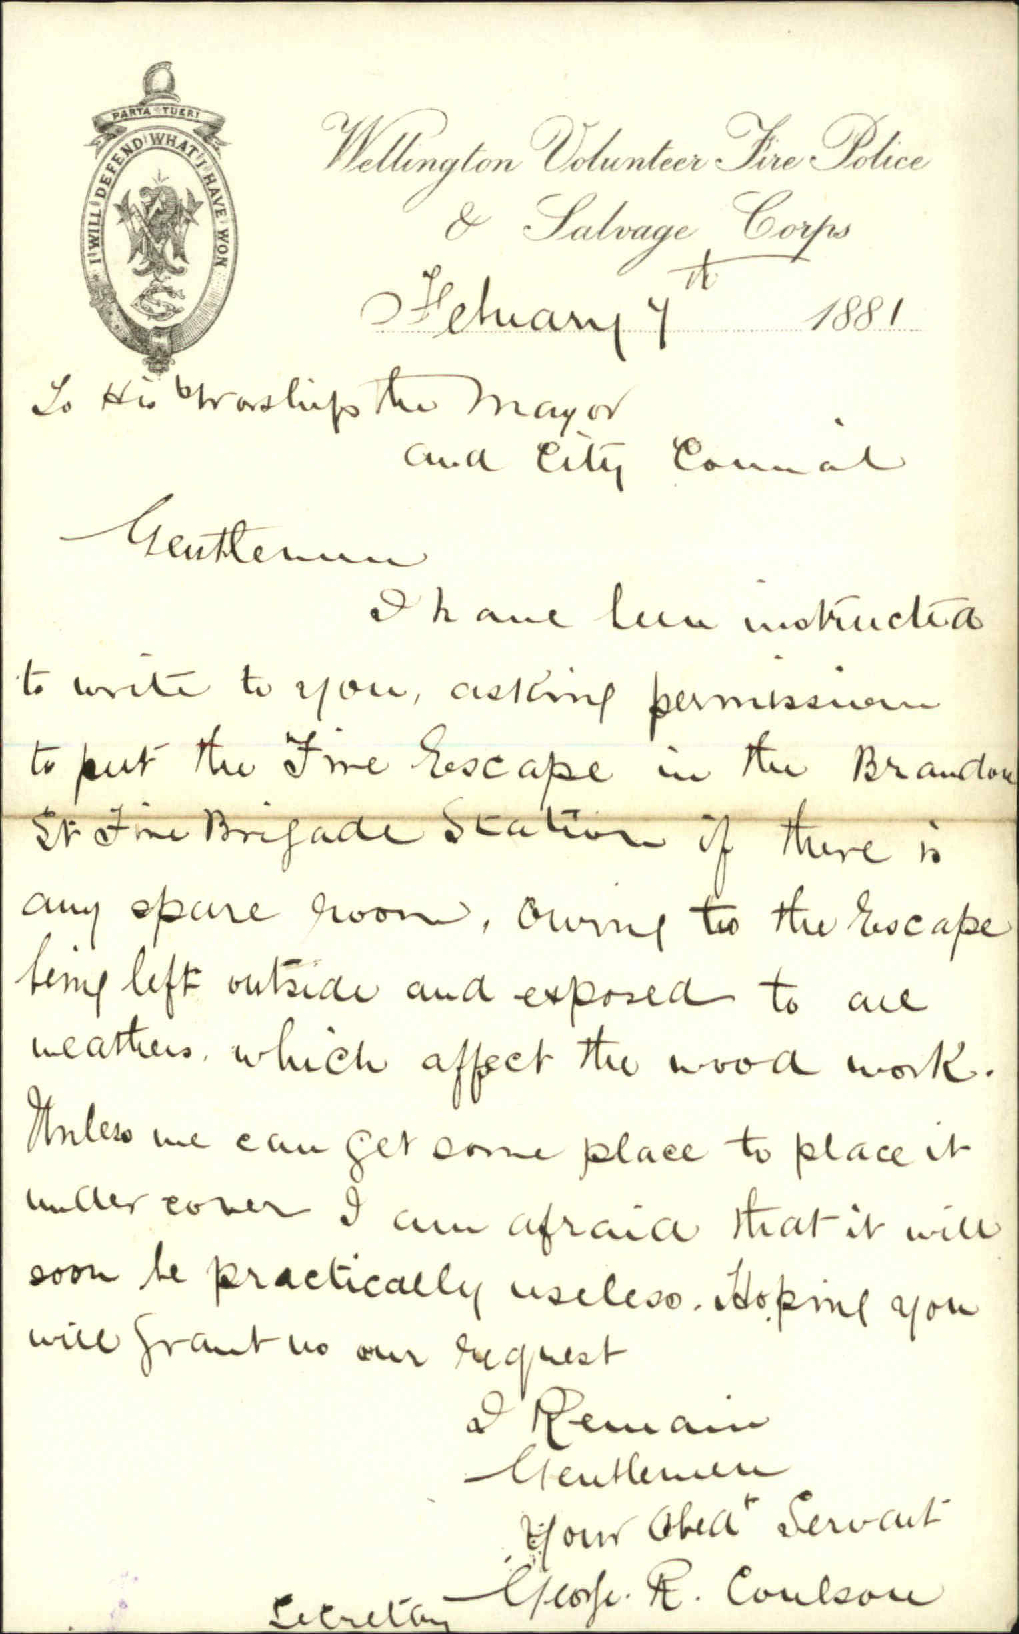 PARTA TUERI
I WILL DEFEND WHAT I HAVE WON
Wellington Volunteer Fire Police
& Salvage Corps
February 7th 1881
To His Worship the Mayor
and City Council
Gentlemen
I have been instructed
to write to you, asking permission
to put the Fire Escape in the Brandon
St Fire Brigade Station if there is
any spare room, owing to the Escape
being left outside and exposed to all
weathers, which affect the wood work.
Unless we can get some place to place it
under cover I am afraid that it will
soon be practically useless. Hoping you
will grant us our request
I Remain
Gentlemen
Your Obedt Servant
George. R. Coulson
Secretary